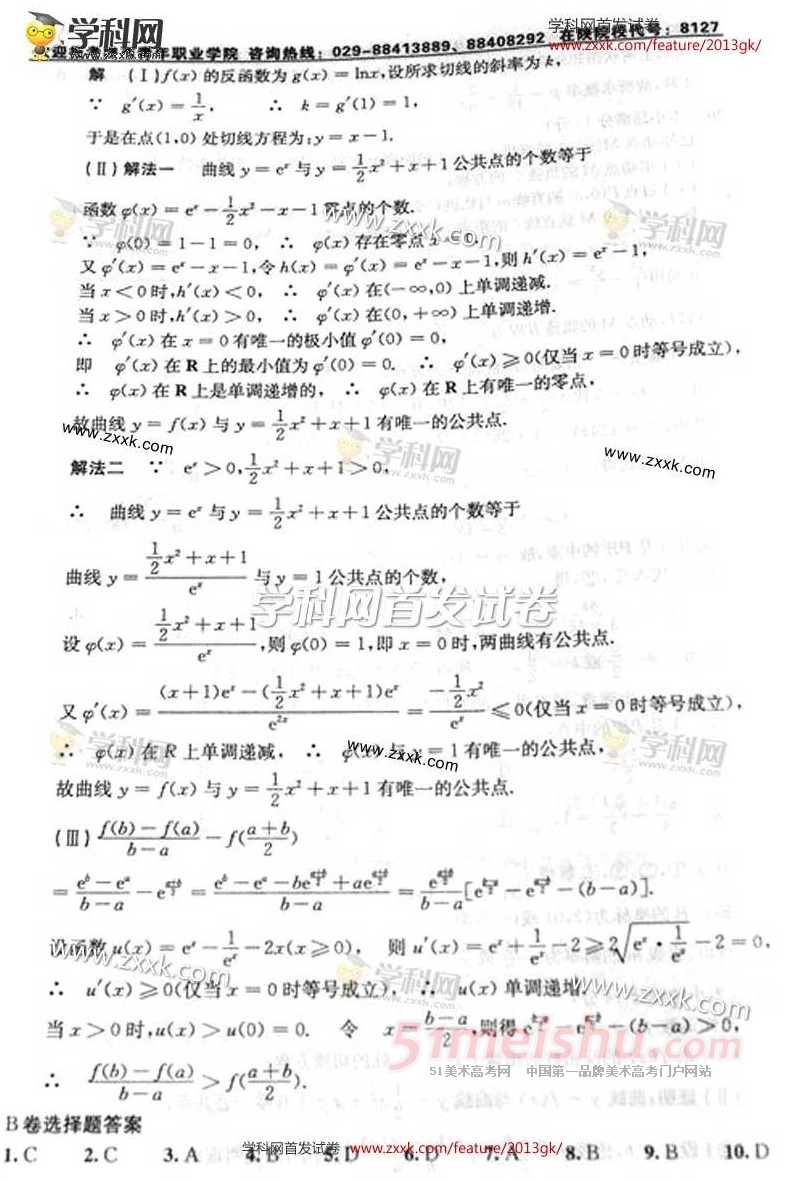 学科网首发试卷
www.zxxk.com/feature/2013gk/
职业学院 咨询热线：029-88413889、88408292 在陕院校代号：8127
解 (Ⅰ)f(x)的反函数为g(x)=lnx,设所求切线的斜率为k,
∵ g′(x)=1/x, ∴ k=g′(1)=1,
于是在点(1,0)处切线方程为:y=x-1.
(Ⅱ)解法一 曲线y=e^x与y=1/2x²+x+1公共点的个数等于
函数φ(x)=e^x-1/2x²-x-1零点的个数.
∵ φ(0)=1-1=0, ∴ φ(x)存在零点x=0.
又φ′(x)=e^x-x-1,令h(x)=φ′(x)=e^x-x-1,则h′(x)=e^x-1,
当x<0时,h′(x)<0, ∴ φ′(x)在(-∞,0)上单调递减.
当x>0时,h′(x)>0, ∴ φ′(x)在(0,+∞)上单调递增.
∴ φ′(x)在x=0有唯一的极小值φ′(0)=0,
即 φ′(x)在R上的最小值为φ′(0)=0. ∴ φ′(x)≥0(仅当x=0时等号成立),
∴ φ(x)在R上是单调递增的, ∴ φ(x)在R上有唯一的零点,
故曲线y=f(x)与y=1/2x²+x+1有唯一的公共点.
解法二 ∵ e^x>0,1/2x²+x+1>0,
∴ 曲线y=e^x与y=1/2x²+x+1公共点的个数等于
曲线y=(1/2x²+x+1)/e^x与y=1公共点的个数,
学科网首发试卷
设φ(x)=(1/2x²+x+1)/e^x,则φ(0)=1,即x=0时,两曲线有公共点.
又φ′(x)=((x+1)e^x-(1/2x²+x+1)e^x)/e^{2x}=(-1/2x²)/e^x≤0(仅当x=0时等号成立),
∴ φ(x)在R上单调递减, ∴ φ(x)与y=1有唯一的公共点,
故曲线y=f(x)与y=1/2x²+x+1有唯一的公共点.
(Ⅲ)(f(b)-f(a))/(b-a)-f((a+b)/2)
=(e^b-e^a)/(b-a)-e^{(a+b)/2}=(e^b-e^a-be^{(a+b)/2}+ae^{(a+b)/2})/(b-a)=e^{(a+b)/2}/(b-a)[e^{(b-a)/2}-e^{(a-b)/2}-(b-a)].
设函数u(x)=e^x-1/e^x-2x(x≥0), 则u′(x)=e^x+1/e^x-2≥2√(e^x·1/e^x)-2=0,
∴ u′(x)≥0(仅当x=0时等号成立), ∴ u(x)单调递增.
当x>0时,u(x)>u(0)=0. 令 x=(b-a)/2,则得e^{(b-a)/2}-e^{(a-b)/2}-(b-a)>0,
51meishu.com
51美术高考网 中国第一品牌美术高考门户网站
∴ (f(b)-f(a))/(b-a)>f((a+b)/2).
B卷选择题答案
1.C 2.C 3.A 4.B 5.D 6.D 7.A 8.B 9.B 10.D
学科网首发试卷 www.zxxk.com/feature/2013gk/